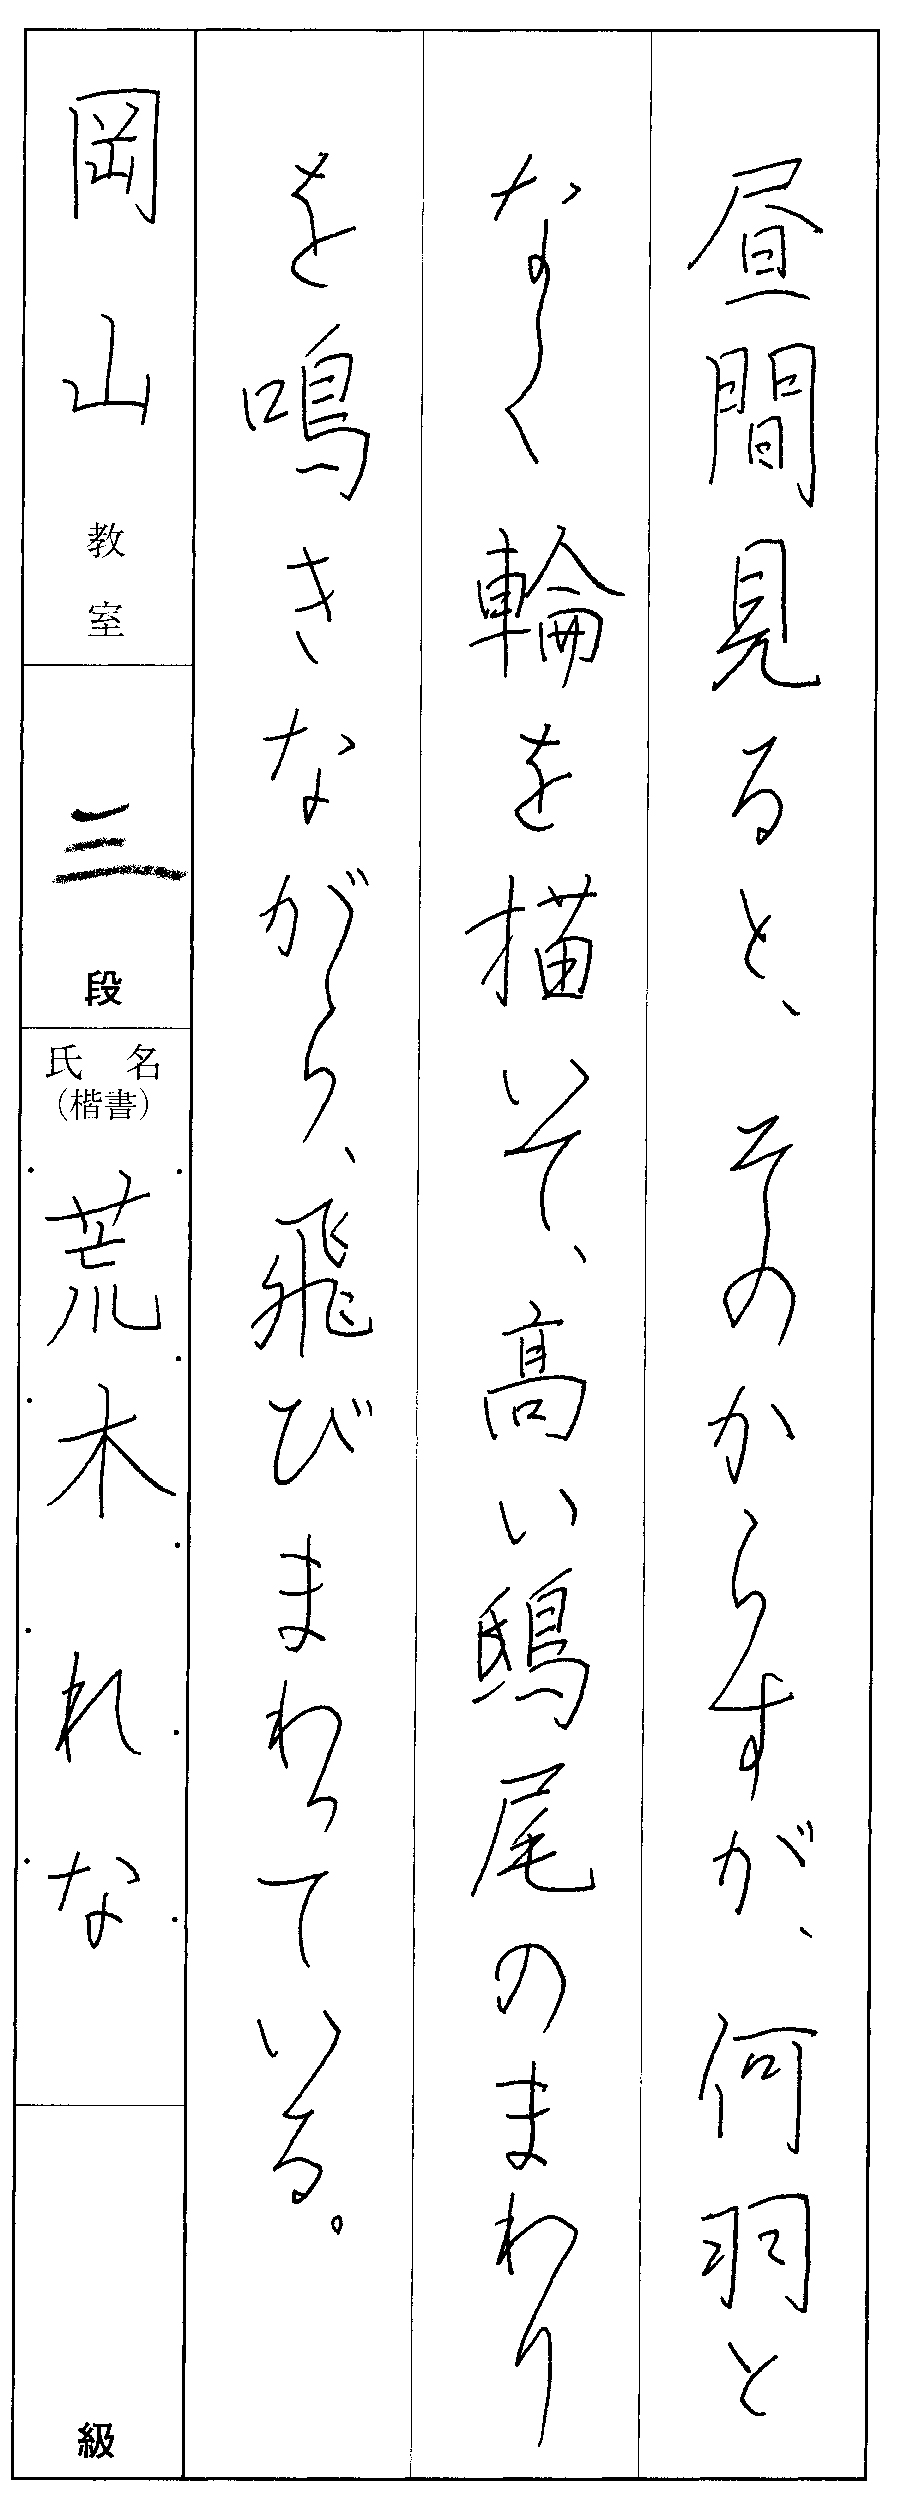 昼間見ると、そのからすが、何羽と
なく輪を描いて、高い鴟尾のまわり
を鳴きながら、飛びまわっている。
岡山教室
三段
氏名
(楷書)
荒木れな
級